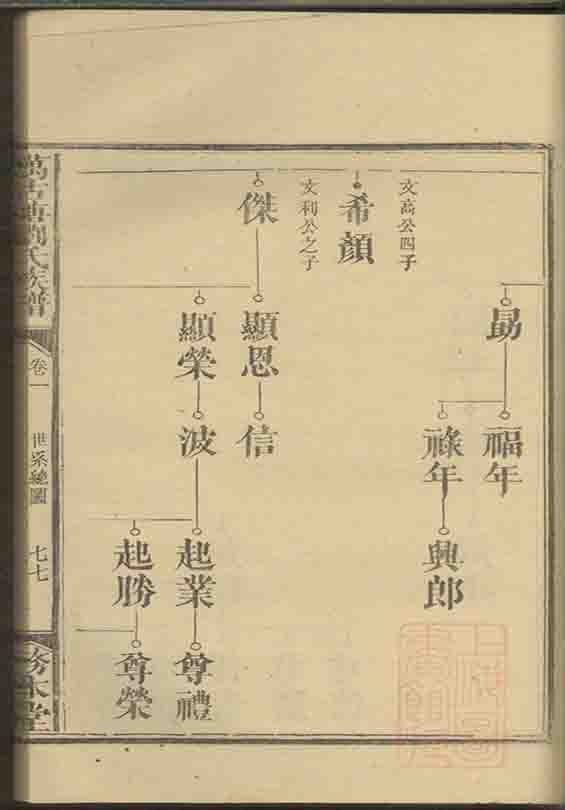 勗
福年
祿年
興郎
文高公四子
希顏
文利公之子
傑
顯恩
信
顯榮
波
起業
尊禮
起勝
尊榮
氏族譜
卷一
世系總圖
七七
務本堂
上海圖書館藏